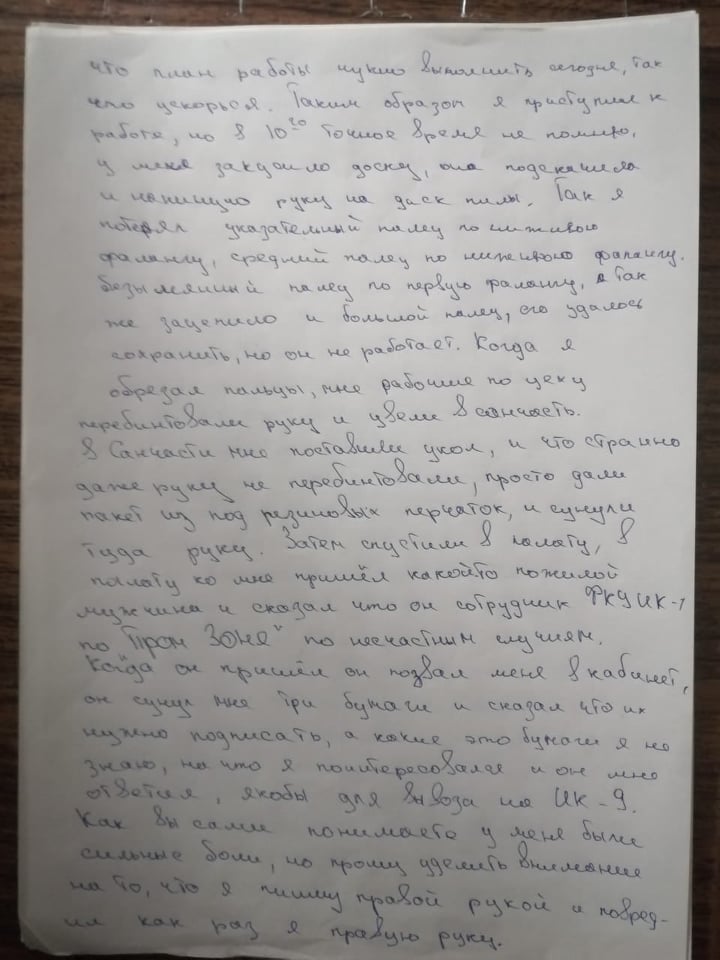 что план работы нужно выполнить сегодня, так
что ускорься. Таким образом я приступил к
работе, но в 10²⁰ точное время не помню,
у меня закусило доску, она подскачила
и на руку на диск пилы. Так я
потерял указательный палец по нижнюю
фалангу, средний палец по нижнюю фалангу.
безымянный палец по первую фалангу, а так
же зацепило и большой палец, его удалось
сохранить, но он не работает. Когда я
обрезал пальцы, мне рабочие по цеху
перебинтовали руку и увели в санчасть.
в Санчасти мне поставили укол, и что странно
даже руку не перебинтовали, просто дали
пакет из под резиновых перчаток, и сунули
туда руку. Затем спустили в палату, в
палату ко мне пришёл какойто пожилой
мужчина и сказал что он сотрудник ФКУ ИК-1
по "Пром Зоне" по несчастным случиям.
Когда он пришёл он позвал меня в кабинет,
он сунул мне три бумаги и сказал что их
нужно подписать, а какие это бумаги я не
знаю, на что я поинтересовался и он мне
ответил, якобы для вывоза на ИК-9.
Как вы сами понимаете у меня были
сильные боли, но прошу уделить внимание
на то, что я пишу правой рукой и повред-
ил как раз я правую руку.